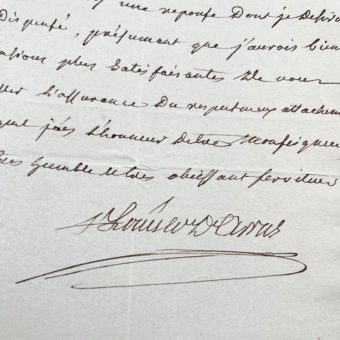 une reponse Dont je Desire
Dispensé, présumant que j'aurois bien
ations plus Satisfaisantes De vous
l'assurance Du respectueux attachem
que j'ai L'honneur D'etre Monseigneur
humble et tres obéissant serviteur